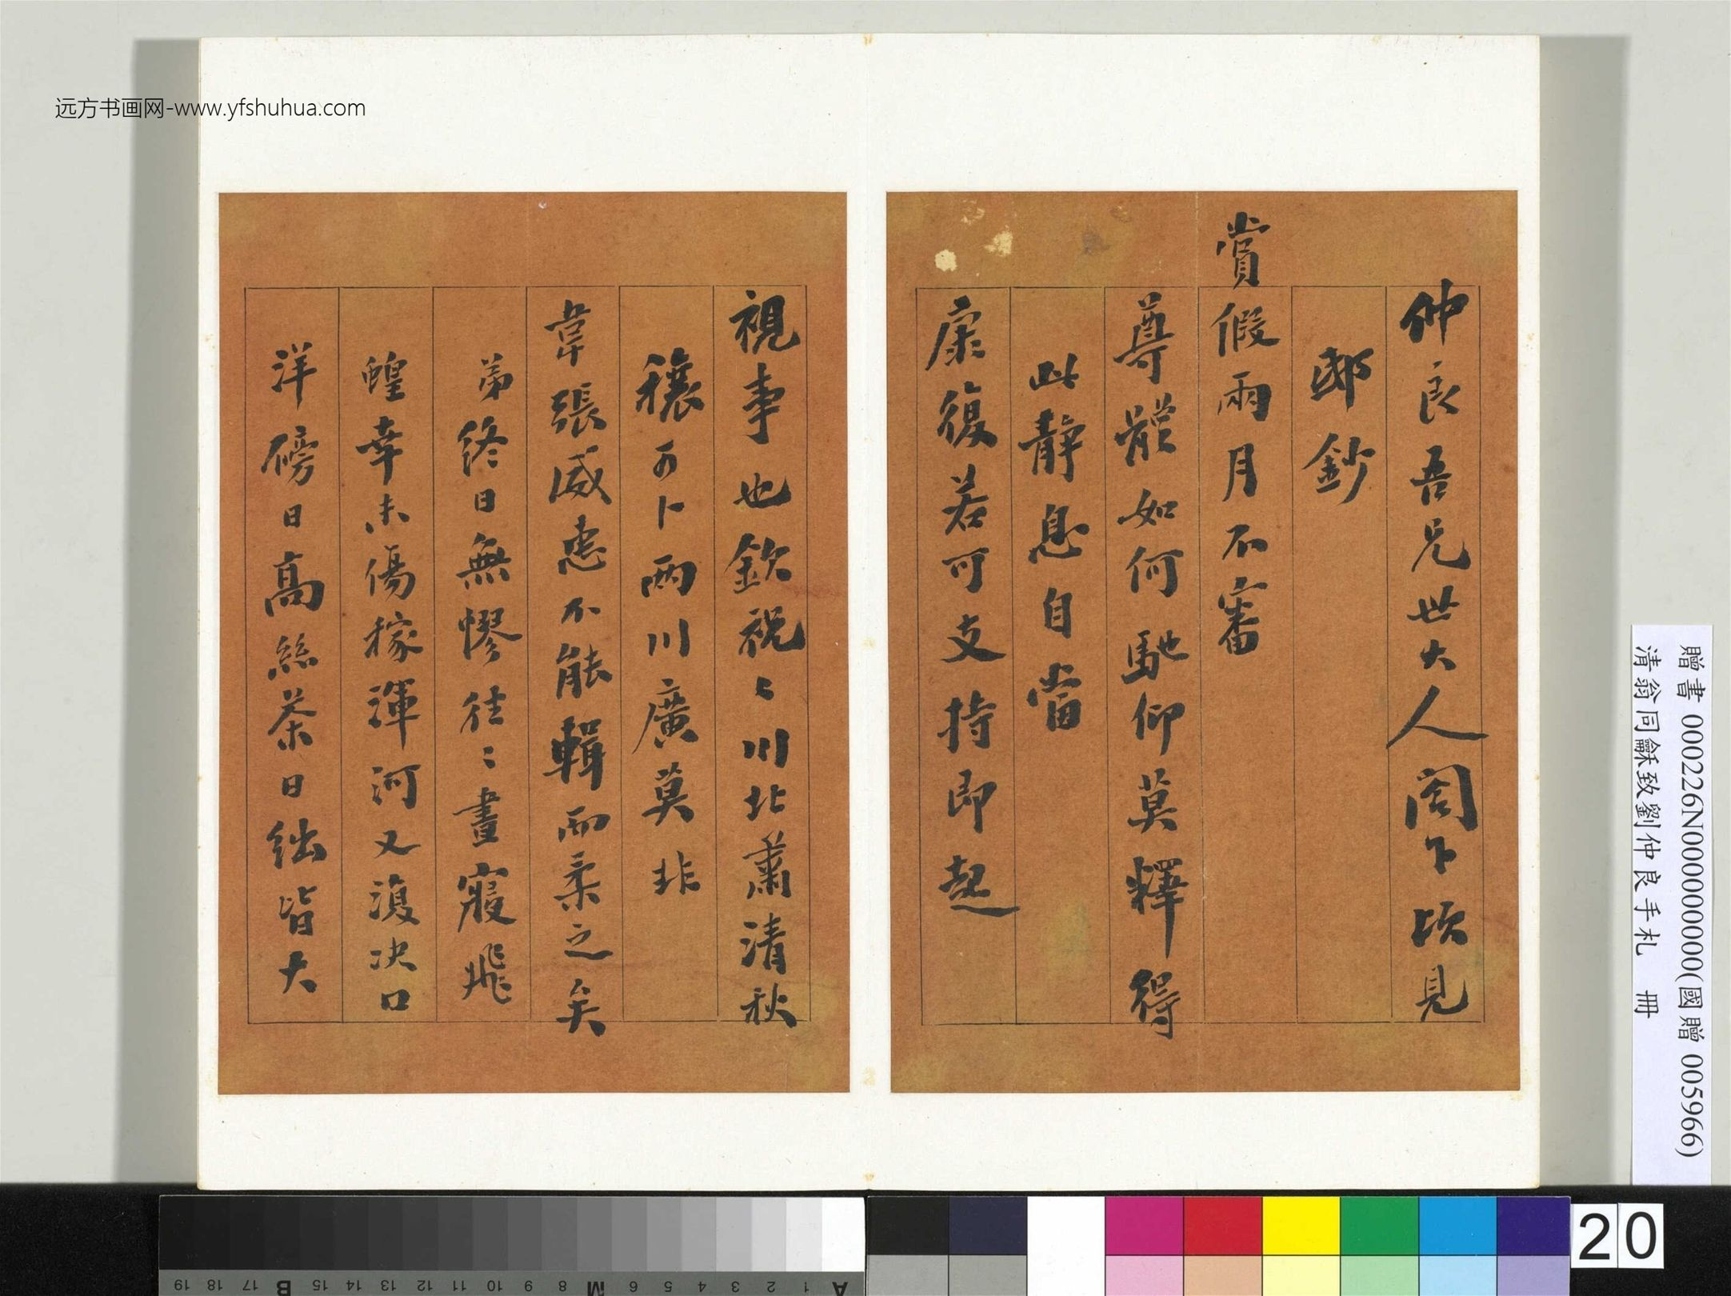 远方书画网-www.yfshuhua.com
仲良吾兄世大人閣下頃見
邸鈔
賞假兩月不審
尊體如何馳仰莫釋得
此靜息自當
康復若可支持即起
視事也欽祝〻川北肅清秋
穰可卜兩川廣莫非
韋張威惠不能輯而柔之矣
弟終日無憀往〻晝寢飛
蝗幸未傷稼渾河又復決口
洋磅日高絲茶日絀皆大
贈書 000226N000000000(國贈 005966)
清翁同龢致劉仲良手札 冊
20
19 18 17 B 15 14 13 12 11 10 9 8 M 6 5 4 3 2 1 A